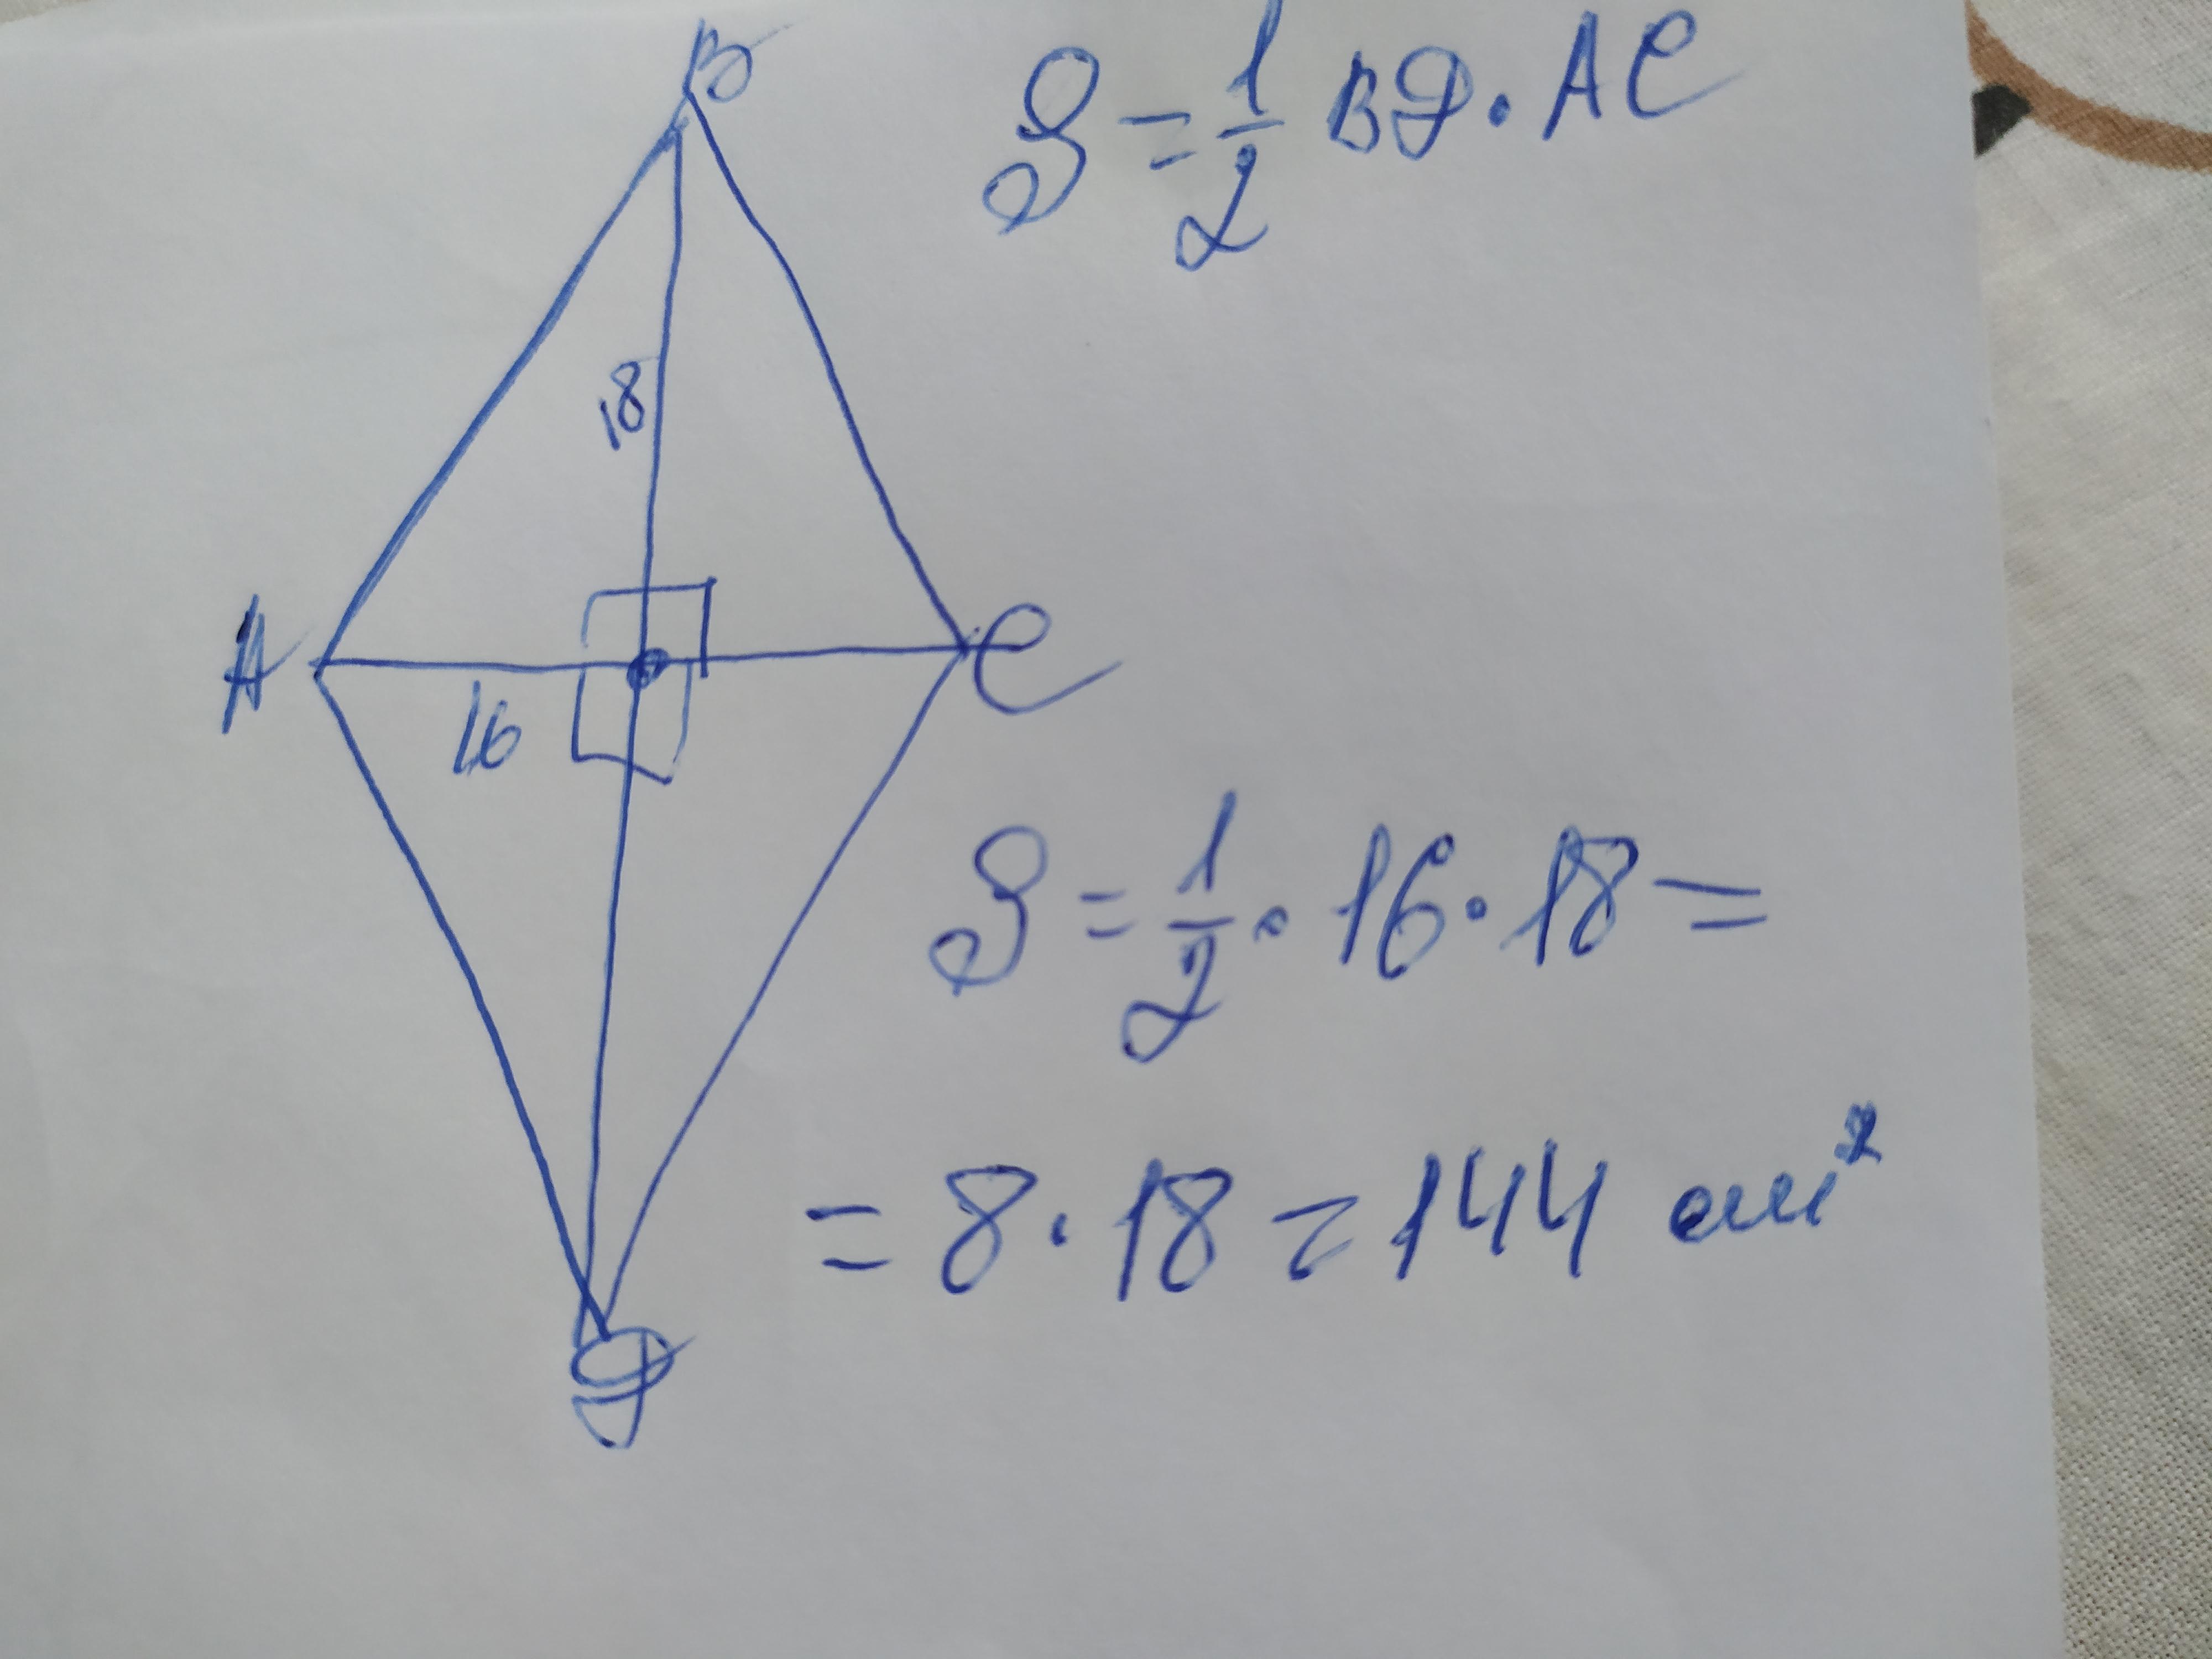 B
S = 1/2 BD · AC
18
A
C
16
S = 1/2 · 16 · 18 =
= 8 · 18 = 144 см²
D